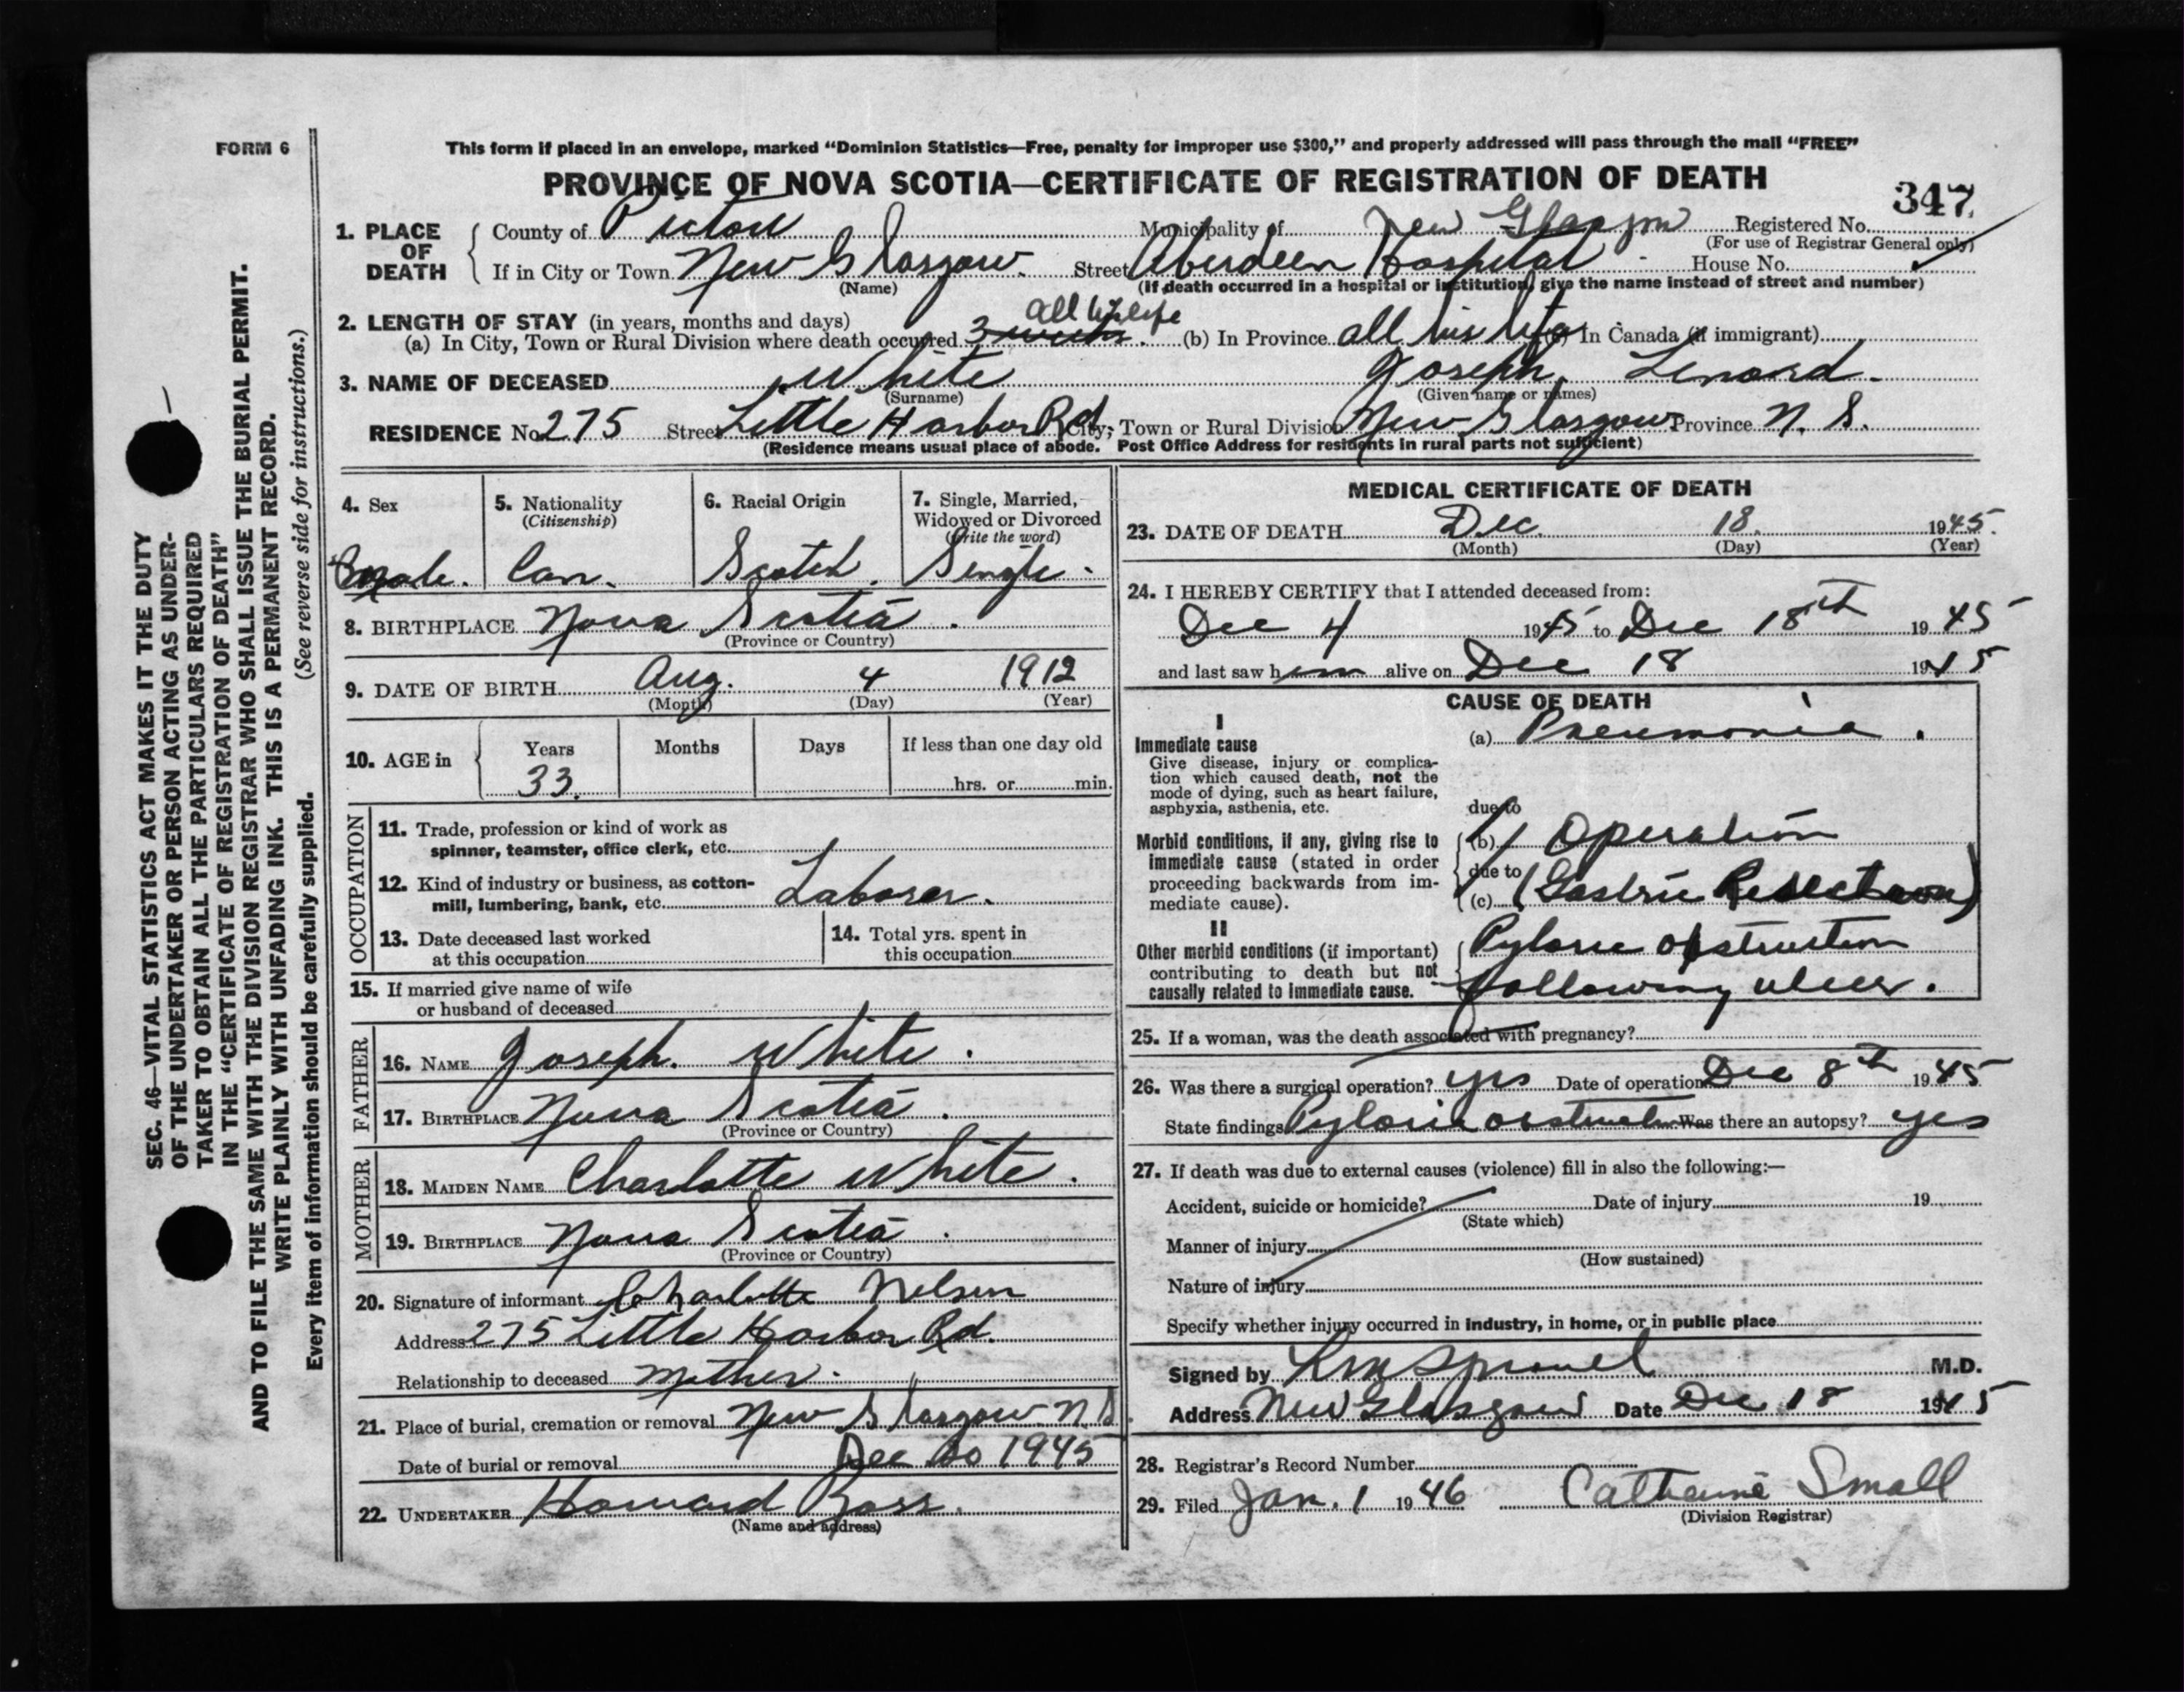 FORM 6
This form if placed in an envelope, marked “Dominion Statistics—Free, penalty for improper use $300,” and properly addressed will pass through the mail “FREE”
PROVINCE OF NOVA SCOTIA—CERTIFICATE OF REGISTRATION OF DEATH
347
1. PLACE OF DEATH County of Pictou Municipality of New Glasgow Registered No.
(For use of Registrar General only)
If in City or Town New Glasgow. Street Aberdeen Hospital House No.
(Name) (If death occurred in a hospital or institution, give the name instead of street and number)
all life
2. LENGTH OF STAY (in years, months and days)
(a) In City, Town or Rural Division where death occurred 3 weeks. (b) In Province all his life (c) In Canada (if immigrant)
3. NAME OF DECEASED White Joseph, Lenord.
(Surname) (Given name or names)
RESIDENCE No. 275 Street Little Harbor Rd City, Town or Rural Division New Glasgow Province N. S.
(Residence means usual place of abode. Post Office Address for residents in rural parts not sufficient)
4. Sex male.
5. Nationality (Citizenship) Can.
6. Racial Origin Scotch.
7. Single, Married, Widowed or Divorced (Write the word) Single.
8. BIRTHPLACE Nova Scotia.
(Province or Country)
9. DATE OF BIRTH Aug. 4 1912
(Month) (Day) (Year)
10. AGE in Years Months Days If less than one day old
33. hrs. or min.
OCCUPATION
11. Trade, profession or kind of work as
spinner, teamster, office clerk, etc.
12. Kind of industry or business, as cotton-
mill, lumbering, bank, etc. Laborer.
13. Date deceased last worked
at this occupation
14. Total yrs. spent in
this occupation
15. If married give name of wife
or husband of deceased
FATHER
16. NAME Joseph. White.
17. BIRTHPLACE Nova Scotia.
(Province or Country)
MOTHER
18. MAIDEN NAME Charlotte White.
19. BIRTHPLACE Nova Scotia.
(Province or Country)
20. Signature of informant Charlotte Nelson
Address 275 Little Harbor Rd.
Relationship to deceased mother.
21. Place of burial, cremation or removal New Glasgow. N.S.
Date of burial or removal Dec 20 1945
22. UNDERTAKER Howard Ross.
(Name and address)
MEDICAL CERTIFICATE OF DEATH
23. DATE OF DEATH Dec. 18. 1945.
(Month) (Day) (Year)
24. I HEREBY CERTIFY that I attended deceased from:
Dec 4 1945 to Dec 18th 1945
and last saw him alive on Dec 18 1945
CAUSE OF DEATH
I
Immediate cause
Give disease, injury or complica-
tion which caused death, not the
mode of dying, such as heart failure,
asphyxia, asthenia, etc.
(a) Pneumonia.
due to
Morbid conditions, if any, giving rise to
immediate cause (stated in order
proceeding backwards from im-
mediate cause).
(b) Operation
due to
(c) (Gastric Resection)
II
Other morbid conditions (if important)
contributing to death but not
causally related to immediate cause.
Pyloric obstruction
following ulcer.
25. If a woman, was the death associated with pregnancy?
26. Was there a surgical operation? yes Date of operation Dec 8th 1945
State findings Pyloric obstruction Was there an autopsy? yes
27. If death was due to external causes (violence) fill in also the following:—
Accident, suicide or homicide? Date of injury 19
(State which)
Manner of injury
(How sustained)
Nature of injury
Specify whether injury occurred in industry, in home, or in public place
Signed by M.D.
Address New Glasgow Date Dec 18 1945
28. Registrar's Record Number
29. Filed Jan. 1 1946 Catherine Small
(Division Registrar)
SEC. 46—VITAL STATISTICS ACT MAKES IT THE DUTY
OF THE UNDERTAKER OR PERSON ACTING AS UNDER-
TAKER TO OBTAIN ALL THE PARTICULARS REQUIRED
IN THE “CERTIFICATE OF REGISTRATION OF DEATH”
AND TO FILE THE SAME WITH THE DIVISION REGISTRAR WHO SHALL ISSUE THE BURIAL PERMIT.
WRITE PLAINLY WITH UNFADING INK. THIS IS A PERMANENT RECORD.
(See reverse side for instructions.)
Every item of information should be carefully supplied.